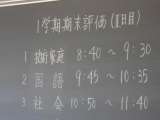 1学期期末評価(II日目)
1 技術家庭 8:40~9:30
2 国語 9:45~10:35
3 社会 10:50~11:40